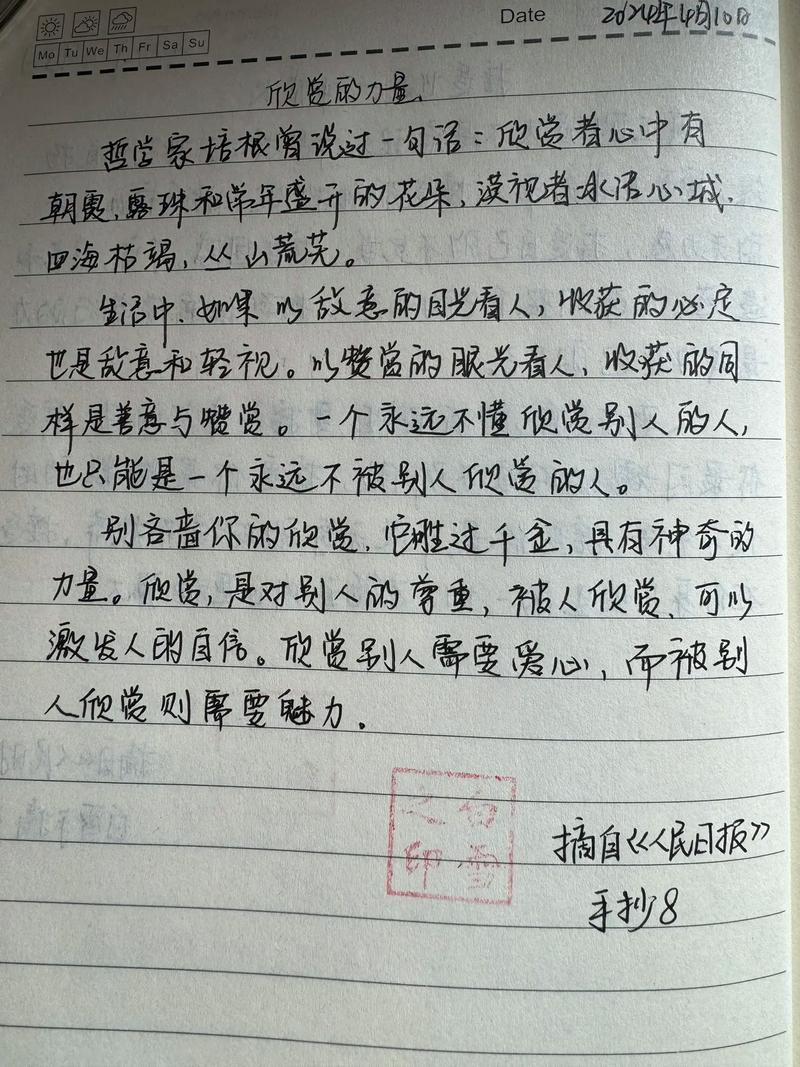 Date 2024年4月10日
Mo Tu We Th Fr Sa Su
欣赏的力量
哲学家培根曾说过一句话：欣赏者心中有
朝霞、露珠和常年盛开的花朵，漠视者冰结心城，
四海枯竭，丛山荒芜。
生活中，如果以敌意的目光看人，收获的必定
也是敌意和轻视。以赞赏的眼光看人，收获的同
样是善意与赞赏。一个永远不懂欣赏别人的人，
也只能是一个永远不被别人欣赏的人。
别吝啬你的欣赏，它胜过千金，具有神奇的
力量。欣赏，是对别人的尊重，被人欣赏，可以
激发人的自信。欣赏别人需要爱心，而被别
人欣赏则需要魅力。
白雪之印
摘自《人民日报》
手抄8